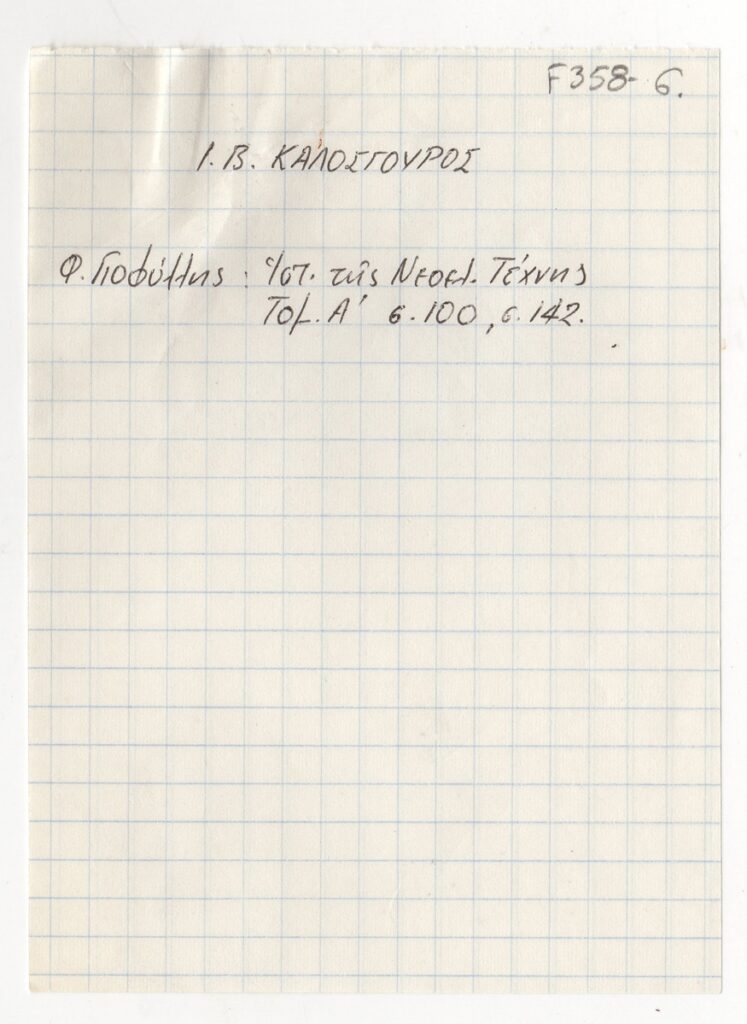 F358-6.
Ι. Β. ΚΑΛΟΣΓΟΥΡΟΣ
Φ. Γιοφύλλης : Ἱστ. τῆς Νεοελ. Τέχνης
Τομ. Α' σ. 100, σ. 142.